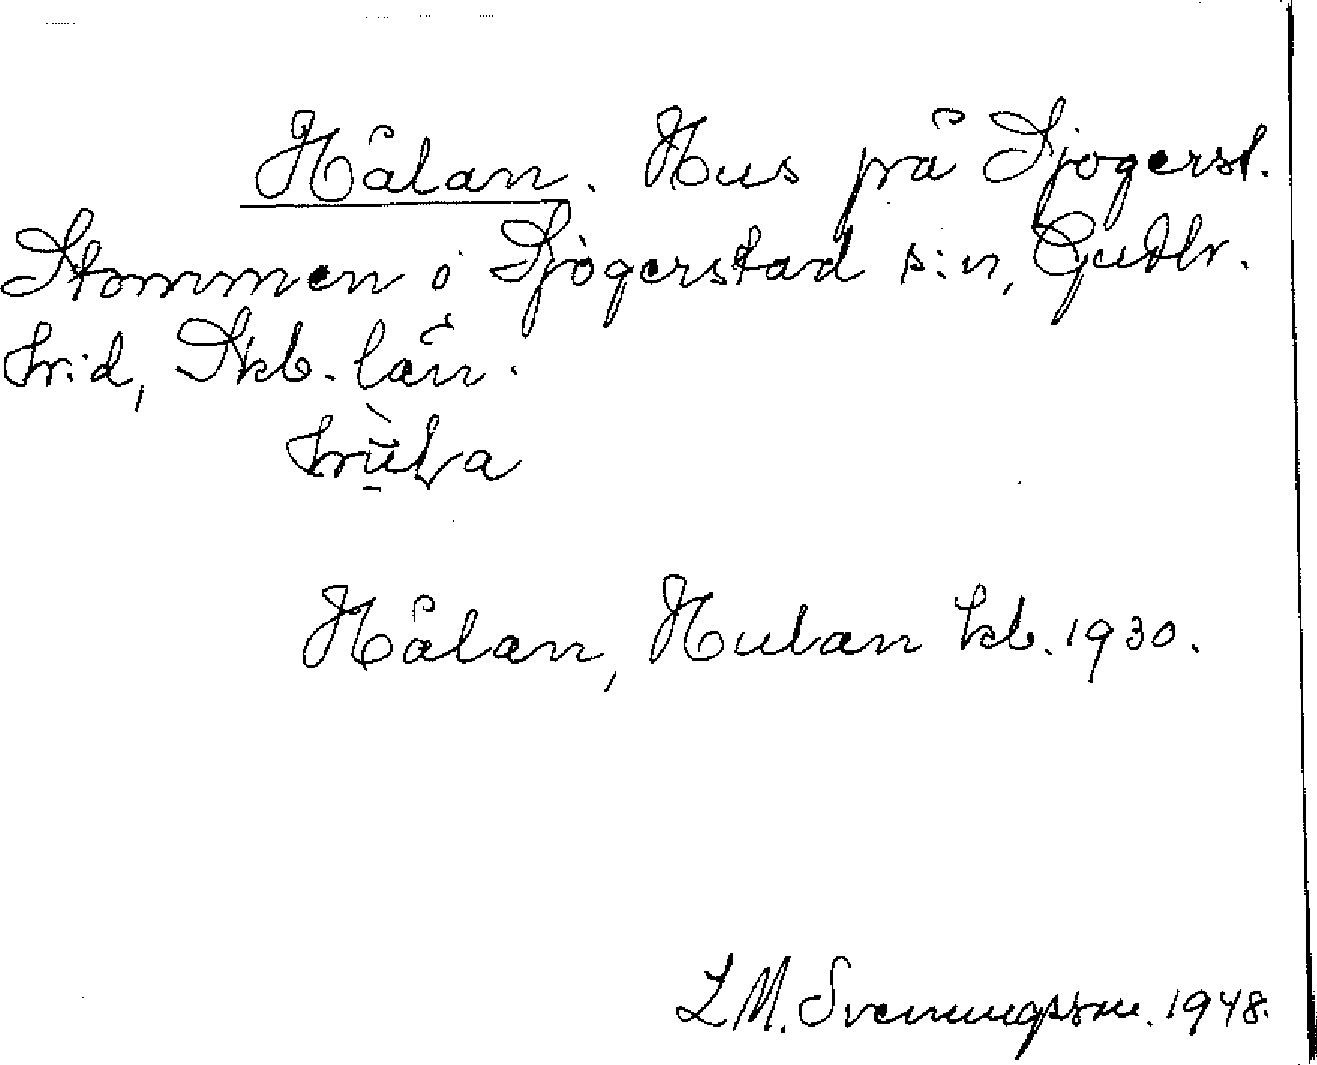 Hålan. Hus på Sjögerst.
Stommen i Sjögerstad s:n, Gudh.
hrd, Skb. län.
Hålan, Hulan kb. 1930.
L M. Svenungsson. 1948.